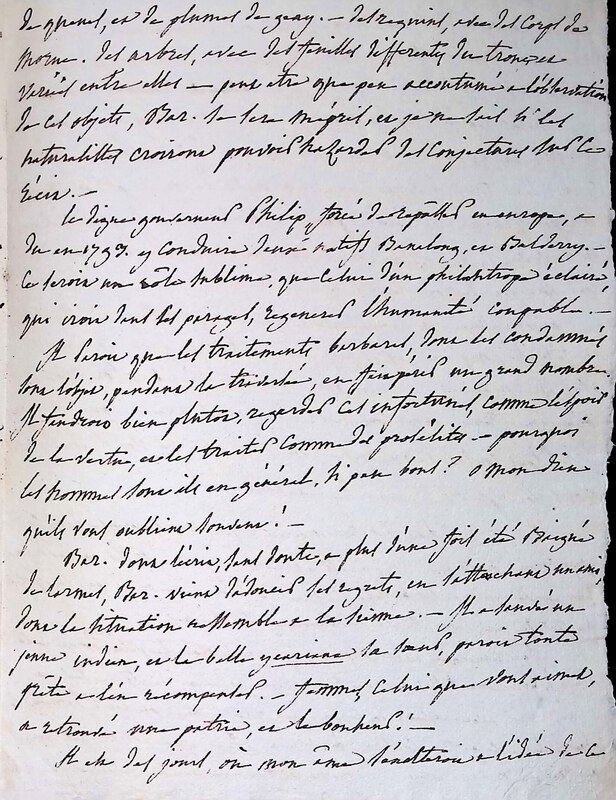 de queues, et de plumes de geay. – des requins, avec des corps de
morue. des arbres, avec des feuilles differentes des tronçes
variés entre elles – peut etre que peu accoutumé a l'observation
de ces objets, Bar. se sera mépris, et je ne sais si les
naturalistes croirons pouvoir hazarder des conjectures sur ce
récit. –
le digne gouverneur Philip, forcé de repasser en europe, a
du en 1793. y conduire deux natifs Banelong, et Balderry. –
Ce seroit un rôle sublime, que celui d'un philantrope éclairé
qui iroit dans ses parages, regenerer l'humanité coupable. –
Il paroit que les traitements barbares, dont les condamnés
sont l'objet, pendant la traversée, en fait périr un grand nombre.
Il faudroit bien plutot, regarder ces infortunés, comme l'espoir
de la vertu, et les traiter comme des prosélites – pourquoi
les hommes sont ils en général, si peu bons? o mon dieu
qu'ils vous oublient souvent! –
Bar. dont l'écrit, sans doute, a plus d'une fois été baigné
de larmes, Bar. vient d'adoucir ses regrets, en s'attachant un ami,
dont la situation ressemble a la sienne. – Il a sauvé un
jeune indien, et la belle yeariana sa soeur, paroit toute
prête a l'en récompenser. – femmes, celui que vous aimés,
a retrouvé une patrie, et le bonheur! –
Il est des jours, où mon âme a l'idée de ce